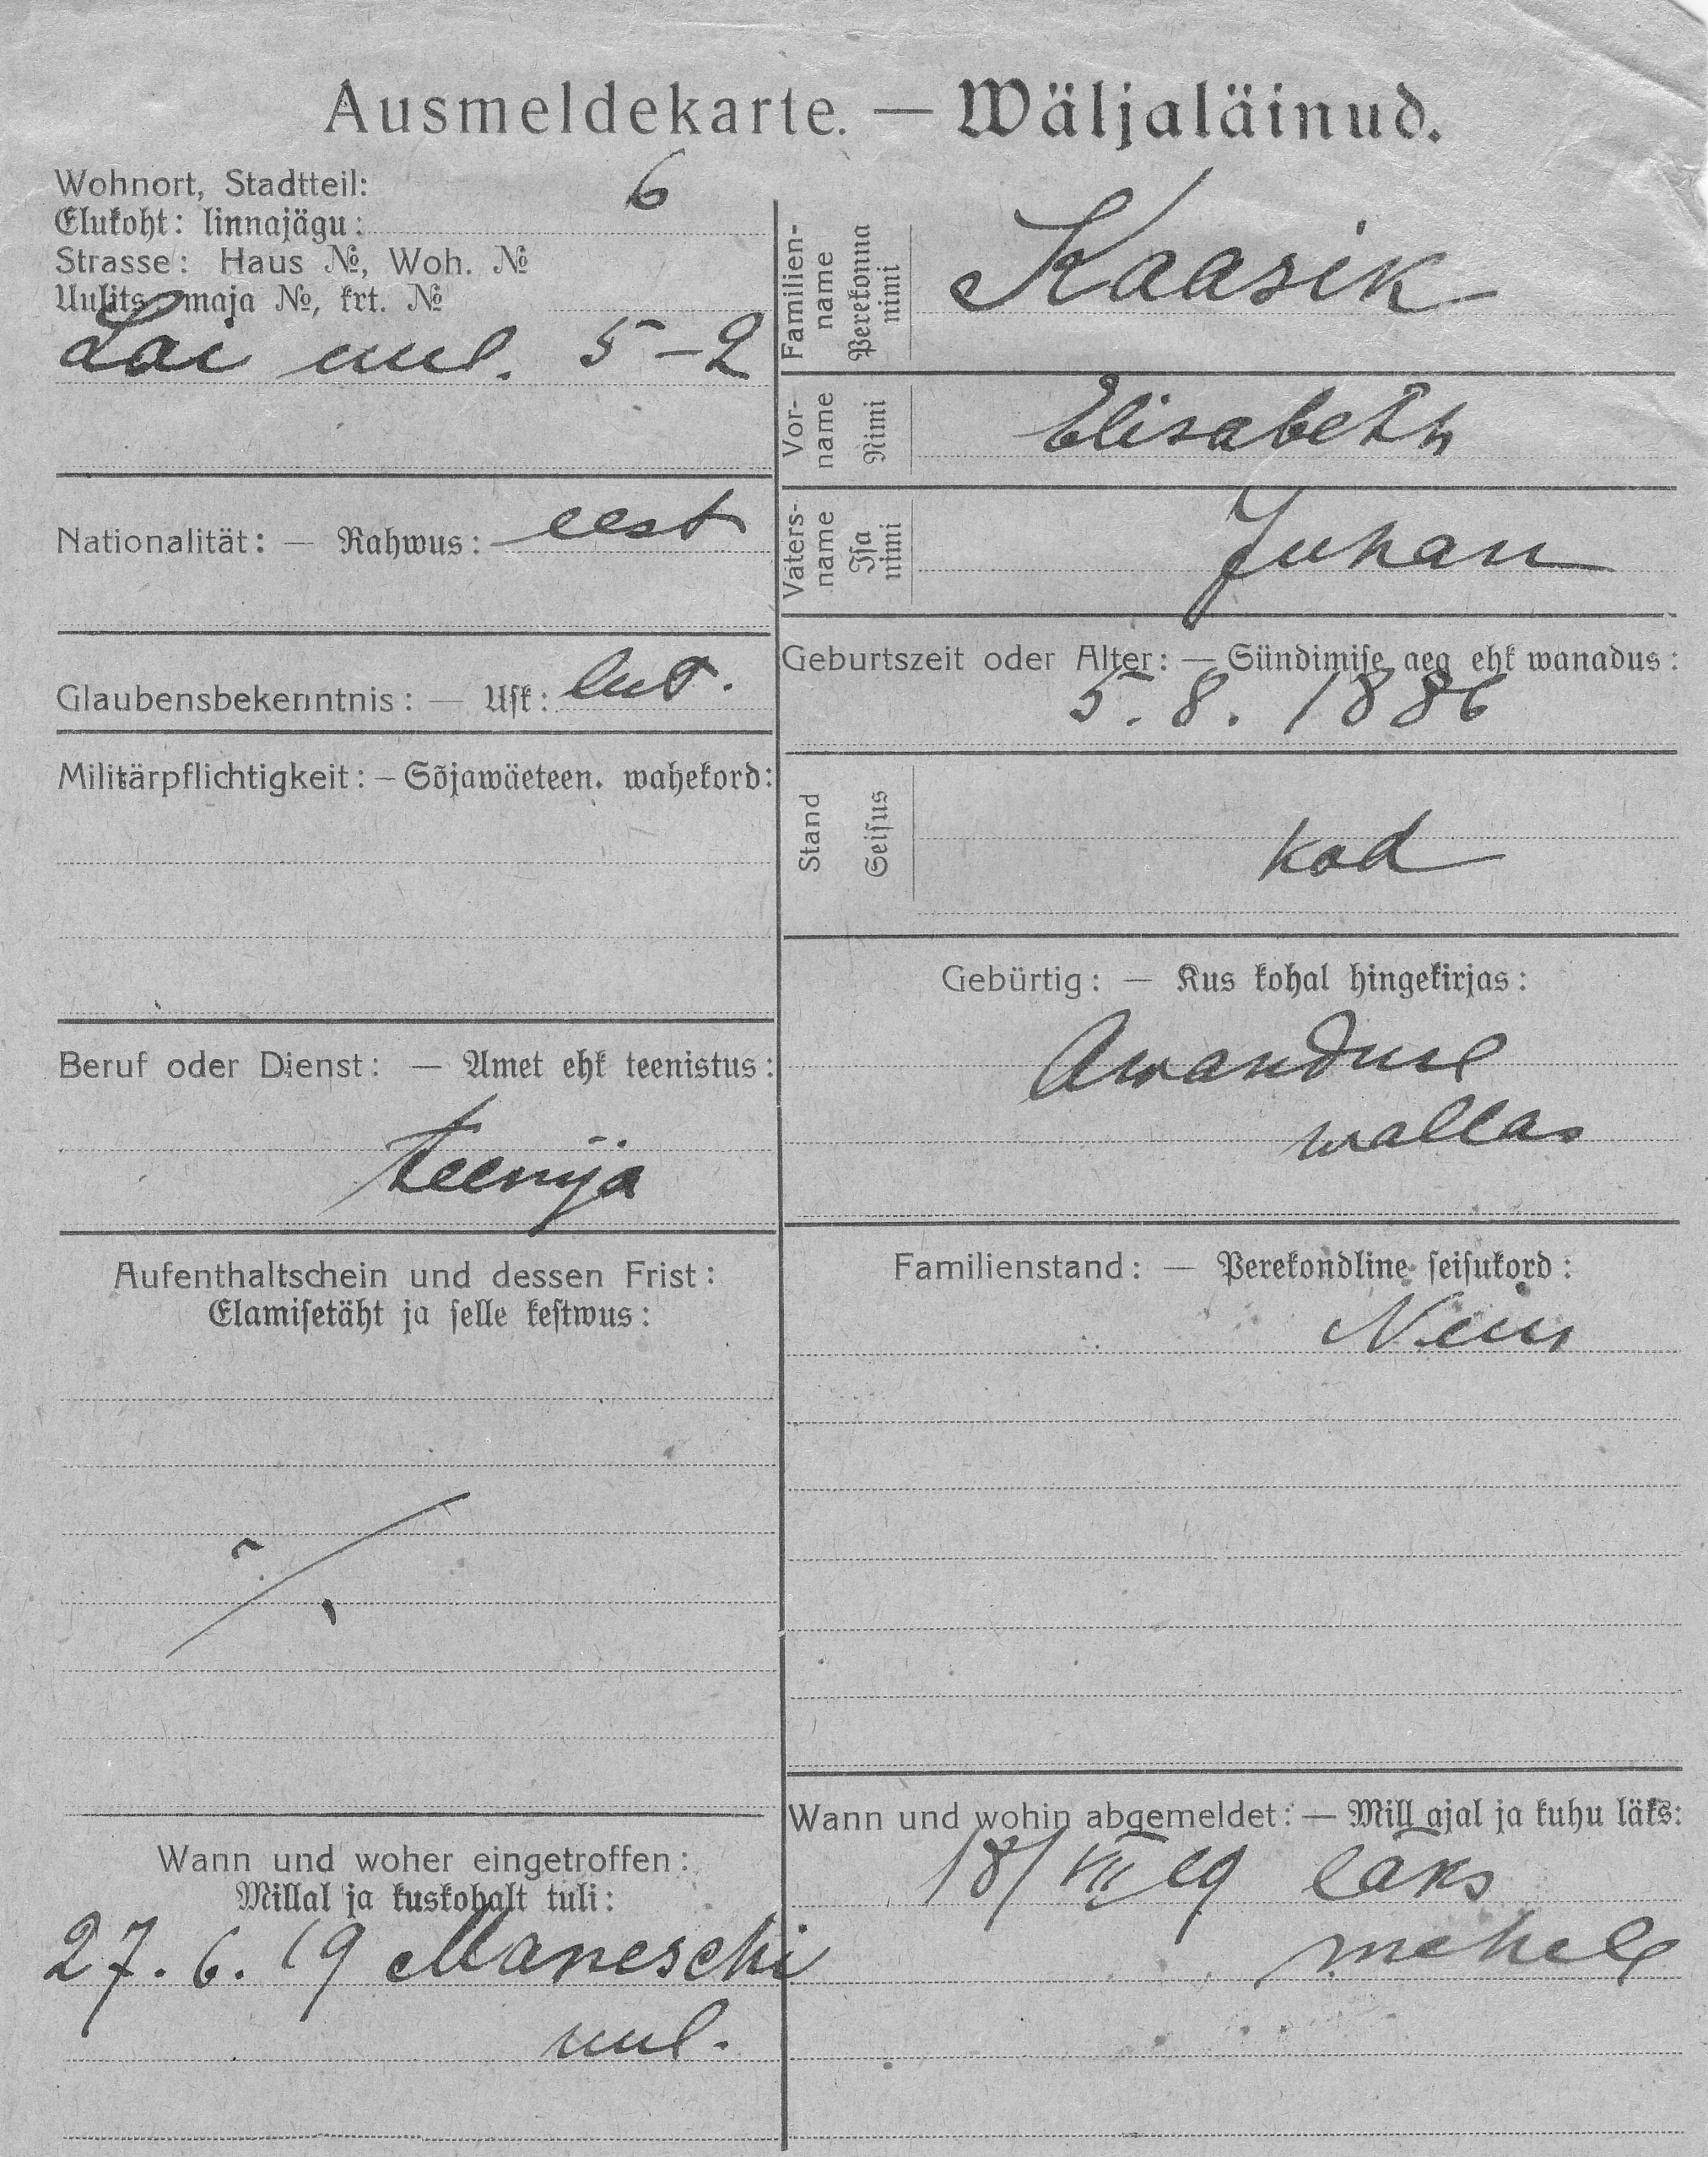 Ausmeldekarte. — Wäljaläinud.
Wohnort, Stadtteil:
Elukoht: linnajägu: 6
Strasse: Haus №, Woh. №
Uulits, maja №, krt. №
Lai uul. 5-2
Nationalität: — Rahwus: eest
Glaubensbekenntnis: — Usk: lut.
Militärpflichtigkeit: — Sõjawäeteen. wahekord:
Beruf oder Dienst: — Amet ehk teenistus:
teenija
Aufenthaltschein und dessen Frist:
Elamisetäht ja selle kestwus:
Wann und woher eingetroffen:
Millal ja kuskohalt tuli:
27. 6. 19 Maneschi
uul.
Familien-
name
Perekonna
nimi
Kaasik
Vor-
name
Nimi
Elisabeth
Vaters-
name
Isa
nimi
Juhan
Geburtszeit oder Alter: — Sündimise aeg ehk wanadus:
5. 8. 1886
Stand
Seisus
kod
Gebürtig: — Kus kohal hingekirjas:
Awanduse
wallas
Familienstand: — Perekondline seisukord:
Neiu
Wann und wohin abgemeldet: — Mill ajal ja kuhu läks:
18/VII 19 läks
mehele